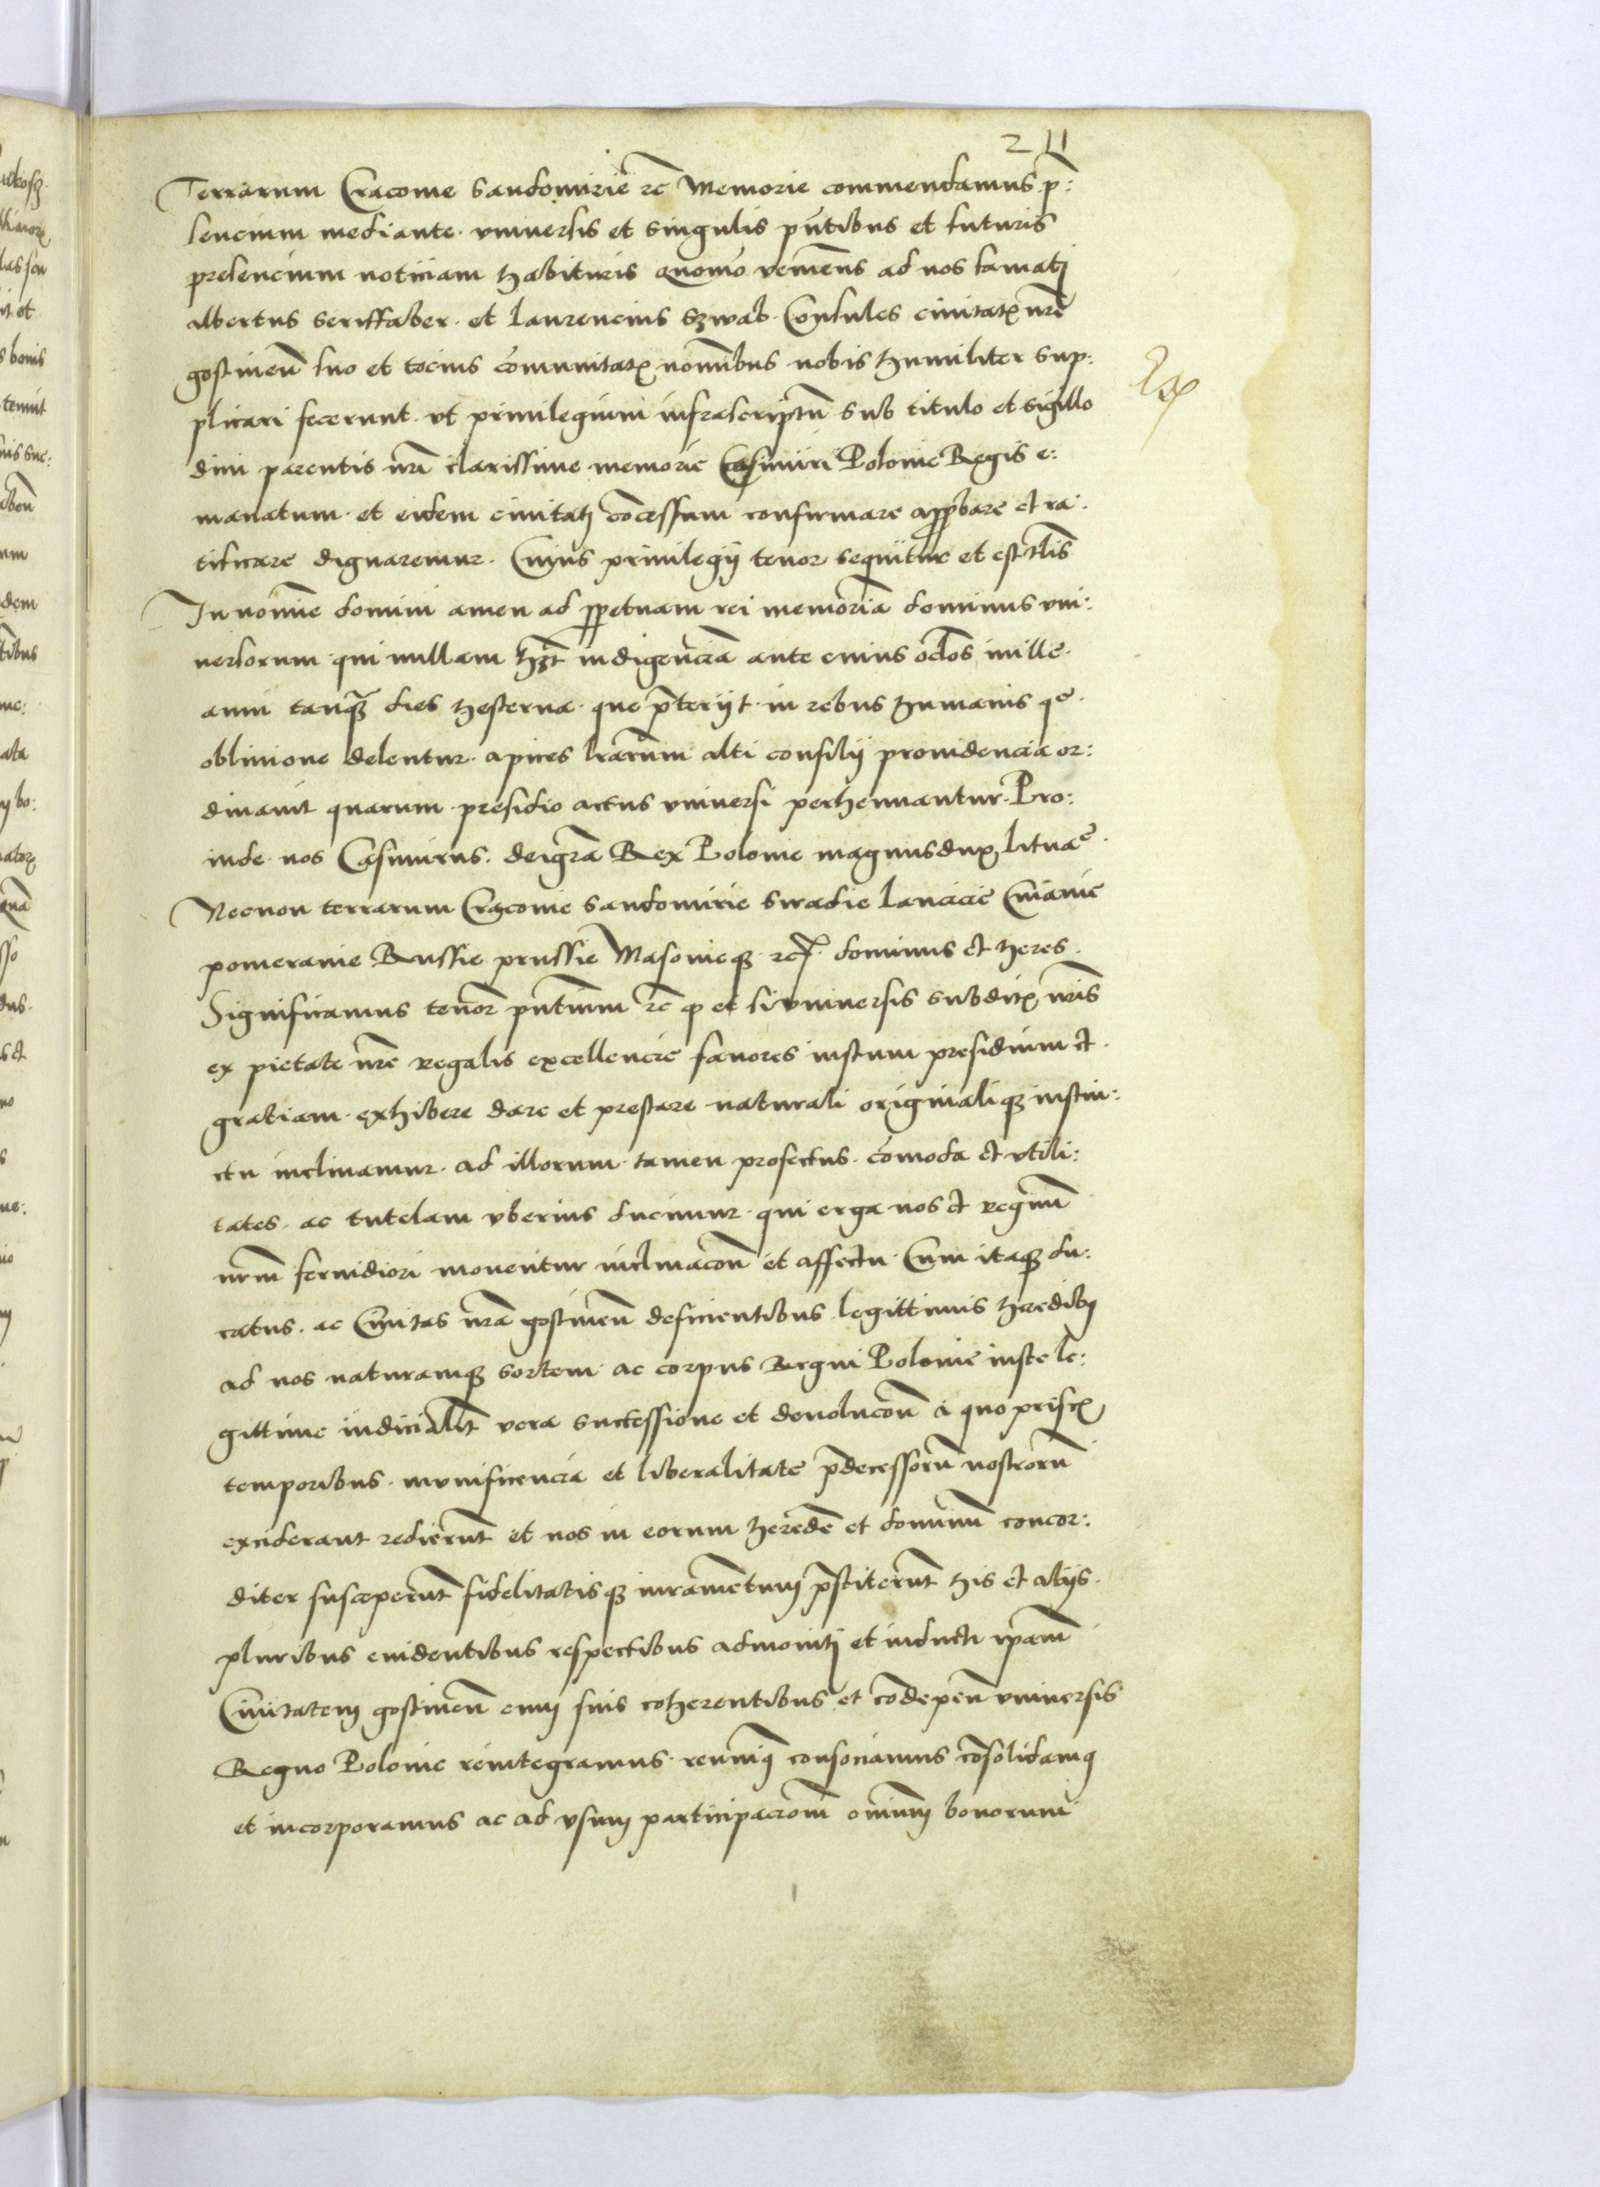 211
Terrarum Cracovie Sandomirie rc Memorie commendamus p̃:
sencium mediante. vniversis et singulis pñtibus et futuris
presencium noticiam habituris quomõ venieñs ad nos famatj
albertus seriffaber. et laurencius szwab. Consules civitatꝭ nr̃e
gostinen̄ suo et tocius cõmunitatꝭ nomĩbus nobis humiliter sup:
plicari fecerunt. vt privilegium infrascriptũ sub titulo et sigillo
divi parentis nr̃i clarissime memorie Casimiri Polonie Regis e:
manatum. et eidem civitatj cõcessum confirmare app̱bare et ra:
tificare dignaremur. Cuius privilegij tenor sequitur et est tl̃is
In noĩne domini amen ad p̱petuam rei memoriã dominus vni:
versorum qui nullam hȝt indigenciã ante cuius oc̃los mille
anni tanqȝ dies hesterna. que p̃terijt. in rebus humanis qᵉ
oblivione delentur. apices lr̃arum alti consilij providencia or:
dinavit quarum presidio actus vniversi perhennantur. Pro:
inde nos Casimirus. dei gr̃a Rex Polonie magnus dux lituaᵉ
Necnon terrarum Cracovie Sandomirie Siradie lancicie Cuiavie
pomeranie Russie prussie Masovieqȝ rc̃ dominus et heres.
Significamus tenor̃ pñtium rc̃ ꝙ et si vniversis subditꝭ nr̃is
ex pietate nr̃e regalis excellencie favores iustum presidium et
gratiam exhibere dare et prestare naturali originaliqȝ instin:
ctu inclinamur. ad illorum tamen profectus. cõmoda et vtili:
tates. ac tutelam vberius ducimur. qui erga nos et regnũ
nr̃m fervidiori moventur inclinacoñ et affectu. Cum itaqȝ du:
catus. ac Civitas nr̃a gostinen̄ deficientibus legittimis heredibꝯ
ad nos naturamqȝ sortem ac corpus Regni Polonie iuste le:
gittime iudicialit̃ vera successione et devolucoñ a quo priscꝭ
temporibus. munificencia et liberalitate p̃decessorũ nostrorũ
exciderant redierũt et nos in eorum heredẽ et dominũ concor:
diter susceperũt fidelitatisqȝ iuramẽtum p̃stiterũt his et alijs.
pluribus evidentibus respectibus admonitj et inducti ip̃am
Civitatem gostinen̄ cum suis coherentibus et cõdepeñ vniversis
Regno Polonie reintegramus. reunimꝯ consociamus cõsolidamꝯ
et incorporamus ac ad vsum participacioñ oĩnium bonorum